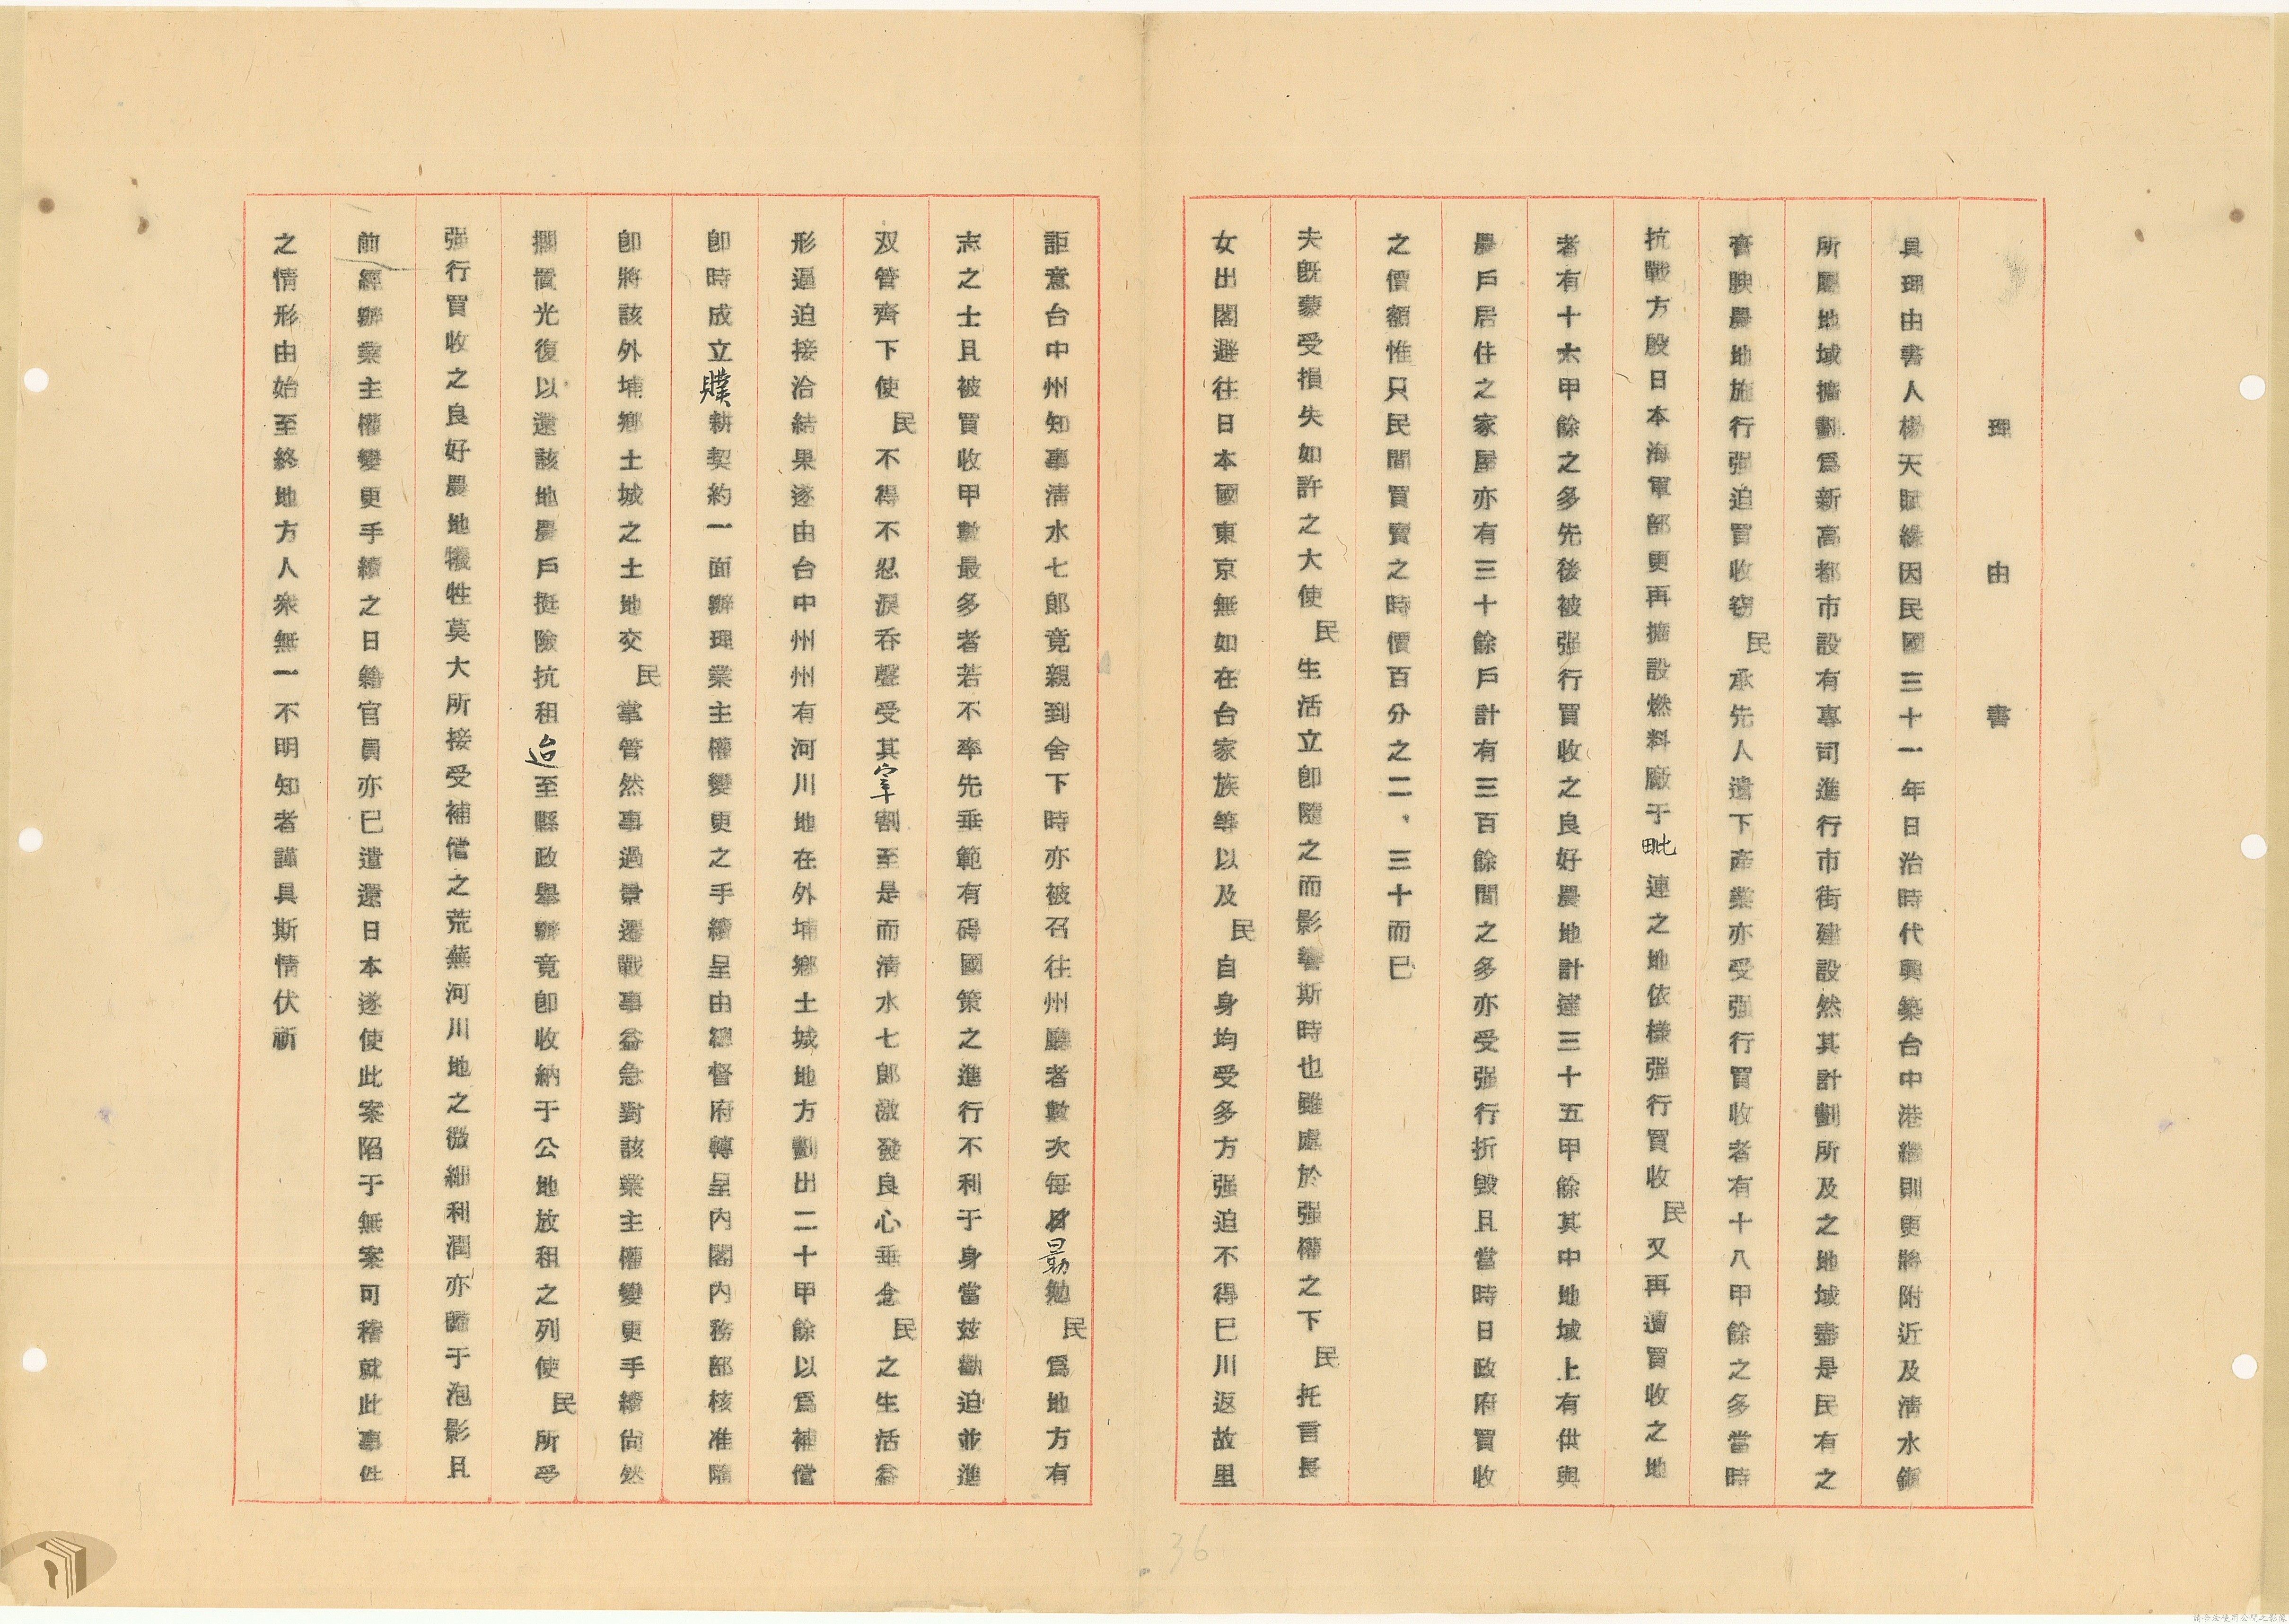 理由書
具理由書人楊天賦緣因民國三十一年日治時代興築台中港繼則更將附近及清水鎮
所屬地域擴劃爲新高都市設有專司進行市街建設然其計劃所及之地域盡是民有之
膏腴農地施行强迫買收窃民承先人遺下產業亦受强行買收者有十八甲餘之多當時
抗戰方殷日本海軍部更再擴設燃料廠于毗連之地依樣强行買收民又再遭買收之地
者有十六甲餘之多先後被强行買收之良好農地計達三十五甲餘其中地域上有供與
農戶居住之家屋亦有三十餘戶計有三百餘間之多亦受强行折毀且當時日政府買收
之價額惟只民間買賣之時價百分之二、三十而已
夫既蒙受損失如許之大使民生活立卽隨之而影響斯時也雖處於强權之下民托言長
女出閣避往日本國東京無如在台家族等以及民自身均受多方强迫不得已川返故里
詎意台中州知事清水七郎竟親到舍下時亦被召往州廳者數次每勗勉民爲地方有
志之士且被買收甲數最多者若不率先垂範有碍國策之進行不利于身當玆勸迫並進
双管齊下使民不得不忍淚吞聲受其宰割至是而清水七郎激發良心垂念民之生活益
形逼迫接洽結果遂由台中州州有河川地在外埔鄉土城地方劃出二十甲餘以爲補償
卽時成立贌耕契約一面辦理業主權變更之手續呈由總督府轉呈內閣內務部核准隨
卽將該外埔鄉土城之土地交民掌管然事過景遷戰事益急對該業主權變更手續尙然
擱置光復以還該地農戶挺險抗租迨至縣政舉辦竟卽收納于公地放租之列使民所受
强行買收之良好農地犧牲莫大所接受補償之荒蕪河川地之微細利潤亦歸于泡影且
前經辦業主權變更手續之日籍官員亦已遣還日本遂使此案陷于無案可稽就此事件
之情形由始至終地方人衆無一不明知者謹具斯情伏祈
36
請合法使用公開之影像